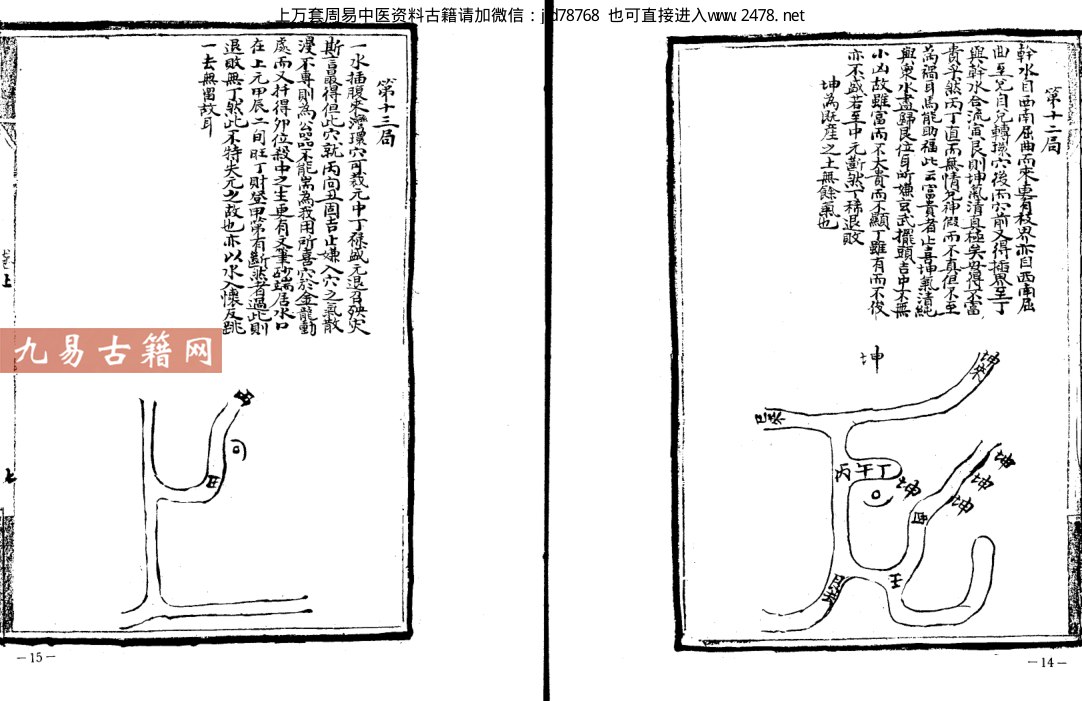 上万套周易中医资料古籍请加微信：jyd78768 也可直接进入www.2478.net
第十二局
幹水自西南屈曲而來更有枝界亦自西南屈
曲至兌自兌轉撓穴後而穴前又得插界至丁
與幹水合流寅艮則坤氣清真極矣焉得不富
貴乎然丙丁直而無情兄神假而不真但不至
為禍耳焉能助福此云富貴者止喜坤氣清純
與東水盡歸艮位耳所嫌玄武擺頭吉中不無
小凶故雖富而不大貴而不顯丁雖有而不俊
亦不盛若至中元斷然丁稀退敗
坤為駁產之土無餘氣也
坤
坤來
巳來
丙午丁
坤
坤
坤
坤
酉
壬
第十三局
一水插腹來灣環穴可裁元中丁祿盛元退召殃灾
斯言最得但此穴就丙向丑固吉止嫌入穴之氣散
漫不專則為公器不能專為我用所喜穴於金龍動
處而又扦得卯位殺中之生更有文筆砂端居水口
在上元甲辰二旬旺丁財登甲第有斷然者過此則
退敗無丁然此不特失元之故也亦以水入懷反跳
一去無留故耳
丑
上
九易古籍网
－15－
－14－